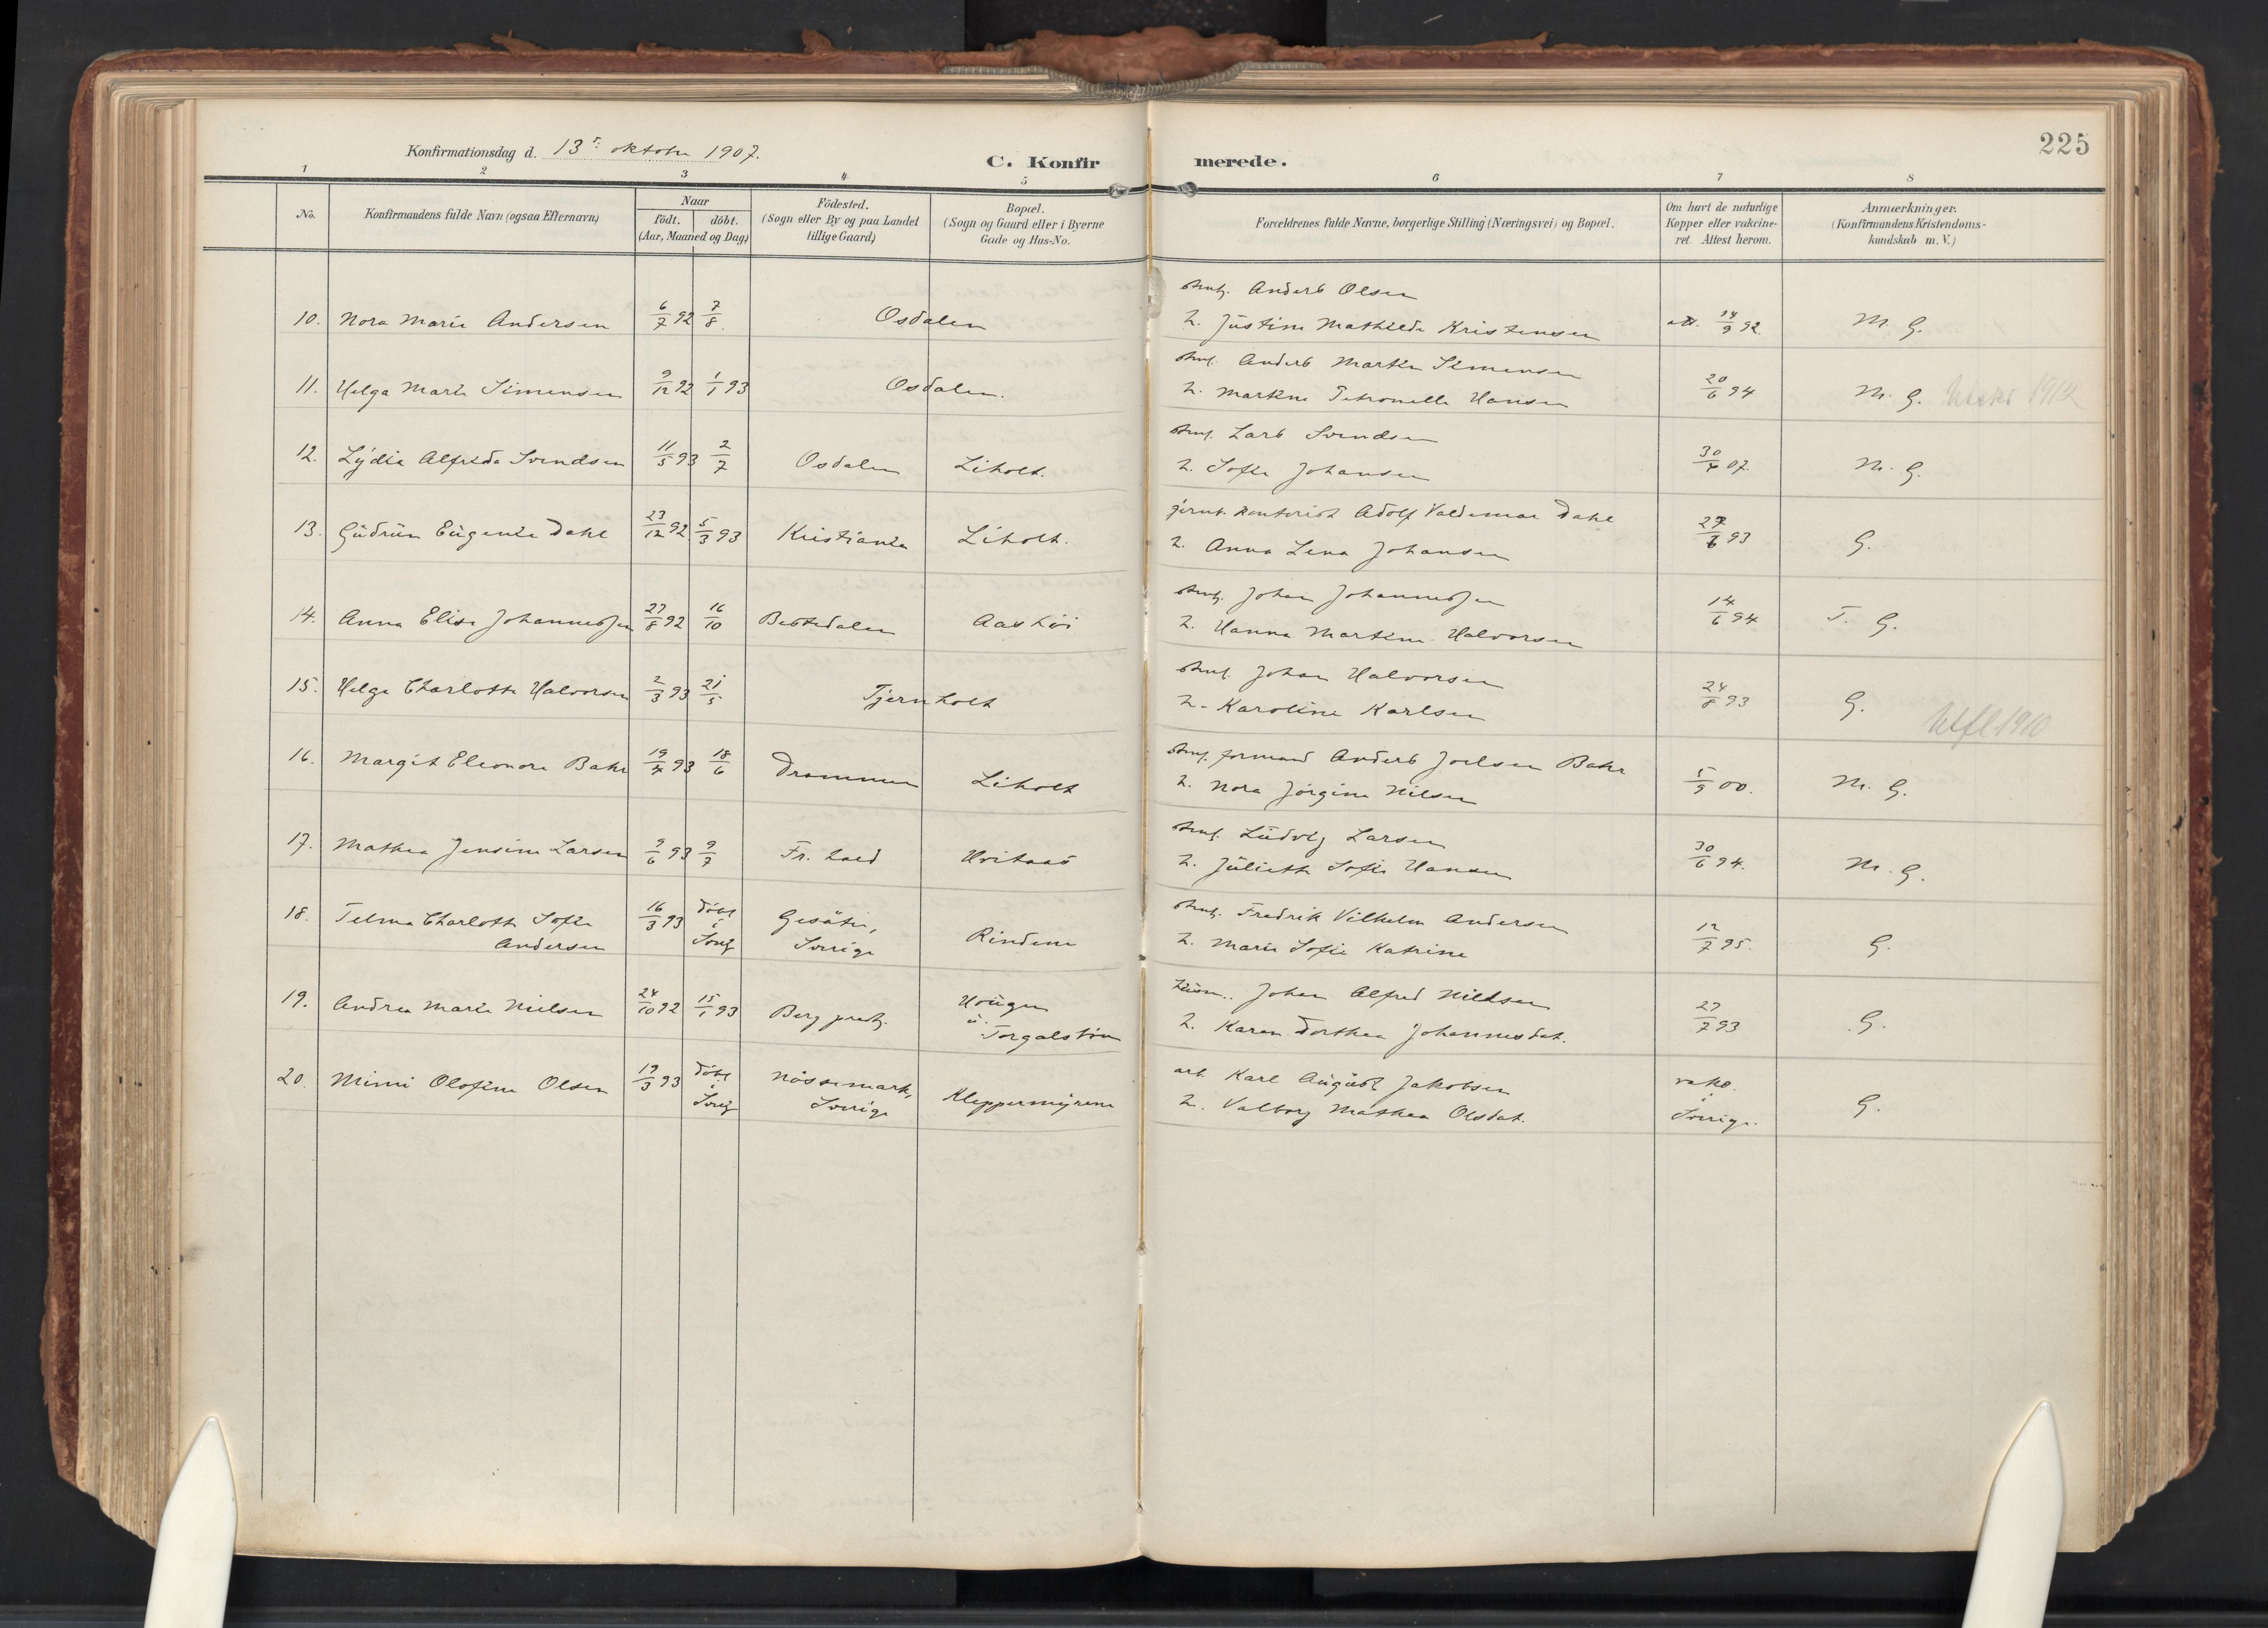 225
Konfirmationsdag d. 13de oktober 1907.
C. Konfirmerede.
1 2 3 4 5 6 7 8
No.
Konfirmandens fulde Navn (ogsaa Efternavn)
Naar
födt. döbt.
(Aar, Maaned og Dag)
Födested.
(Sogn eller By og paa Landet
tillige Gaard)
Bopæl.
(Sogn og Gaard eller i Byerne
Gade og Hus-No.
Forældrenes fulde Navne, borgerlige Stilling (Næringsvei) og Bopæl.
Om havt de naturlige
Kopper eller vakcine-
ret. Attest herom.
Anmærkninger.
(Konfirmandens Kristendoms-
kundskab m. V.)
Anders Olsen
10. Nora Marie Andersen 6/7 92 7/8. Osdalen
2. Justine Mathilde Kristensen att. 14/9 92. M. G.
Anders Martin Simensen
11. Helga Marie Simensen 9/12 92 1/1 93 Osdalen.
2. Martine Petronelle Hansen 20/6 94 M. G. 1912
Lars Svendsen
12. Lydia Alfrida Svendsen 11/5 93 2/7 Osdalen Liholt.
2. Sofie Johansen 30/4 07. M. G.
jernb. kontorist Adolf Valdemar Dahl
13. Gudrun Eugenie Dahl 23/12 92 5/3 93 Kristiania Liholt.
2. Anna Lena Johansen 27/6 93 G.
Johan Johannessen
14. Anna Elise Johannessen 27/8 92 16/10 Bestedalen Aashöi
2. Hanna Martine Halvorsen 14/6 94 T. G.
Johan Halvorsen
15. Helga Charlotte Halvorsen 2/3 93 21/5 Tjernholt
2. Karoline Karlsen 24/8 93 G.
Utfl 1910
formand Anders Joelsen Bahr
16. Margit Eleonore Bahr 19/4 93 18/6 Drammen Liholt
2. Nora Jörgine Nilsen 5/9 00. M. G.
Ludvig Larsen
17. Mathea Jensine Larsen 9/6 93 9/7 Fr. hald Hvitaas
2. Juliette Sofie Hansen 30/6 94. M. G.
Fredrik Vilhelm Andersen
18. Telma Charlotte Sofie
Andersen 16/3 93 döbt
i
Sverig Gesäter,
Sverige Rindene
2. Marie Sofie Katrine 12/7 95. G.
husm. Johan Alfred Nielsen
19. Andrea Marie Nielsen 24/10 92 15/1 93 Berg prestg. Hougen
u. Torgalsböen
2. Karen Dorthea Johannesdat. 27/7 93 G.
arb. Karl August Jakobsen
20. Mimi Olofine Olsen 19/3 93 döbt
i
Sverig Nössemark,
Sverige Kleppermyrene
2. Valborg Mathea Olsdat. vakc.
i
Sverige. G.